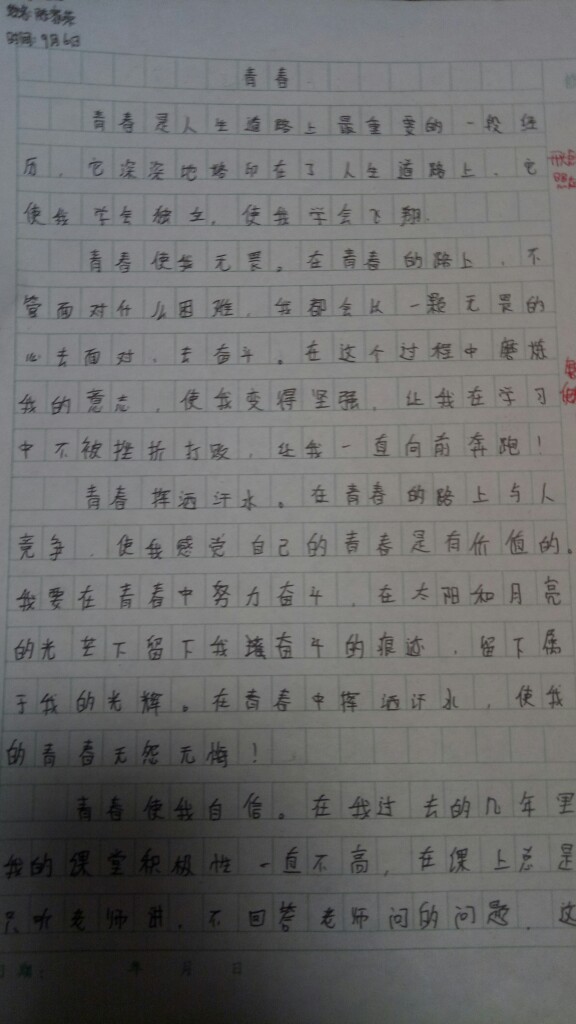 时间:9月6日
青春
青春是人生道路上最重要的一段经
历,它深深地烙印在了人生道路上,它
使我学会独立,使我学会飞翔.
青春使我无畏。在青春的路上,不
管面对什么困难,我都会从一颗无畏的
心去面对,去奋斗。在这个过程中磨炼
我的意志,使我变得坚强,让我在学习
中不被挫折打败,让我一直向前奔跑!
青春挥洒汗水。在青春的路上与人
竞争,使我感觉自己的青春是有价值的。
我要在青春中努力奋斗,在太阳和月亮
的光芒下留下我奋斗的痕迹,留下属
于我的光辉。在青春中挥洒汗水,使我
的青春无怨无悔!
青春使我自信。在我过去的几年里
我的课堂积极性一直不高,在课上总是
只听老师讲,不回答老师问的问题,这
年 月 日